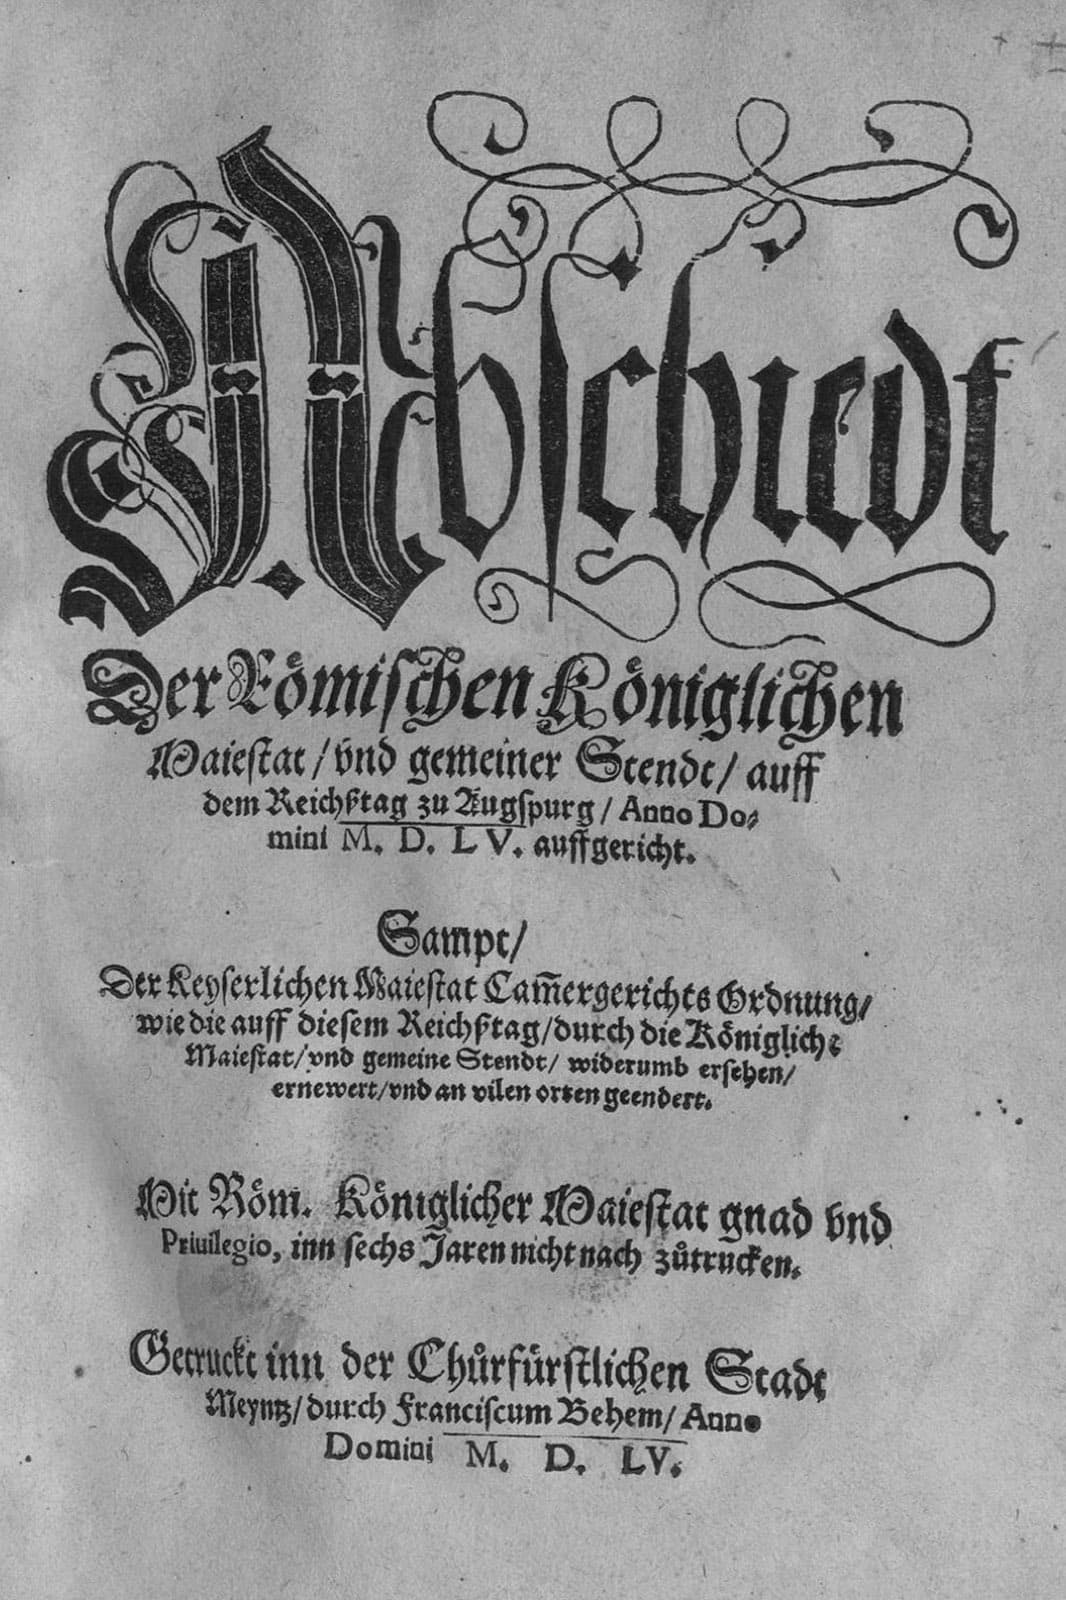 Abschiedt
Der Römischen Königlichen
Maiestat / vnd gemeiner Stendt / auff
dem Reichßtag zu Augspurg / Anno Do⸗
mini M. D. LV. auffgericht.
Sampt /
Der Keyserlichen Maiestat Cam̄ergerichts Ordnung /
wie die auff diesem Reichßtag / durch die Königlich⸗
Maiestat / vnd gemeine Stendt / widerumb ersehen /
ernewert / vnd an vilen orten geendert.
Mit Röm. Königlicher Maiestat gnad vnd
Priuilegio, inn sechs Jaren nicht nach zůtrucken.
Getruckt inn der Chůrfürstlichen Stadt
Meyntz / durch Franciscum Behem / Anno
Domini M. D. LV.